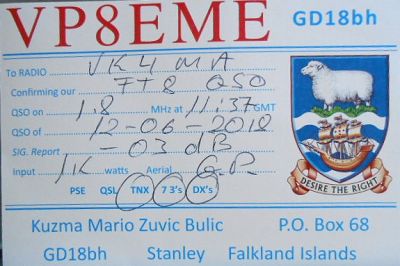 VP8EME GD18bh
To RADIO VK4MA
Confirming our FT8 QSO
QSO on 1.8 MHz at 11:37 GMT
QSO of 12-06-2018
SIG. Report -03 dB
Input 1K watts Aerial G.P.
PSE QSL TNX 73's DX's
DESIRE THE RIGHT
Kuzma Mario Zuvic Bulic P.O. Box 68
GD18bh Stanley Falkland Islands